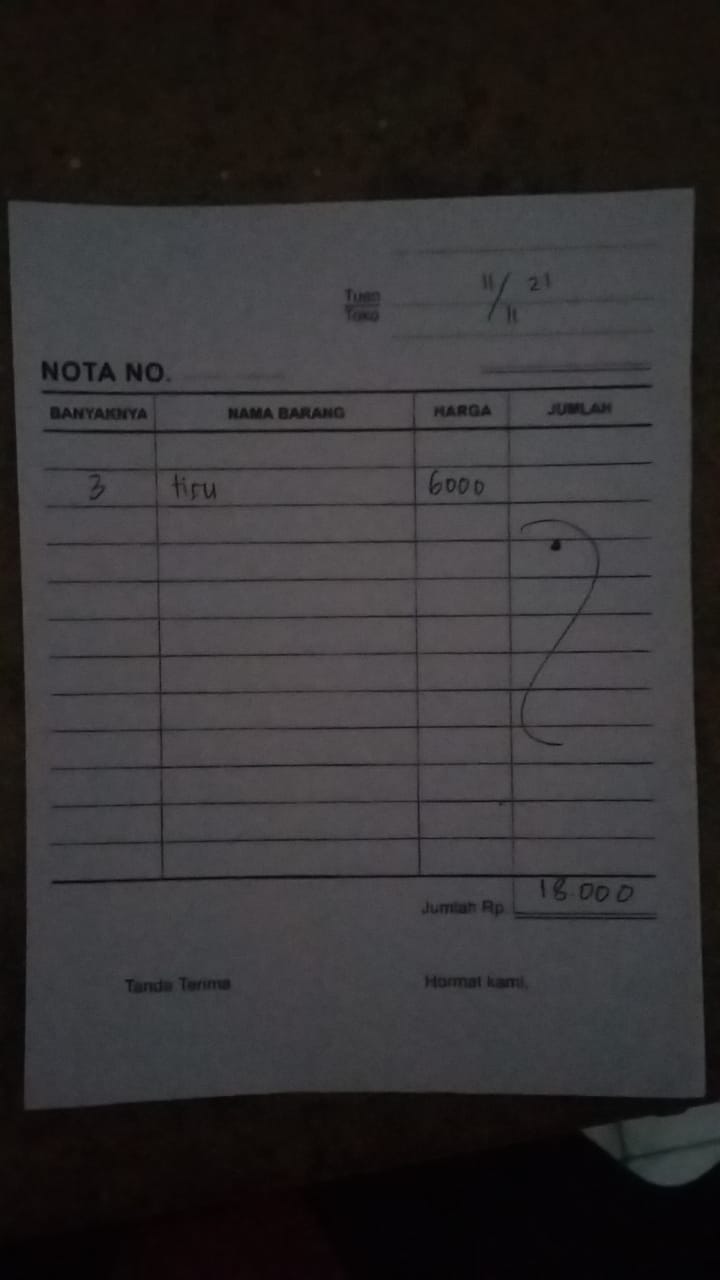 11/11 21
Tuan
Toko
NOTA NO.
BANYAKNYA NAMA BARANG HARGA JUMLAH
3 tisu 6000
Jumlah Rp. 18.000
Tanda Terima Hormat kami,